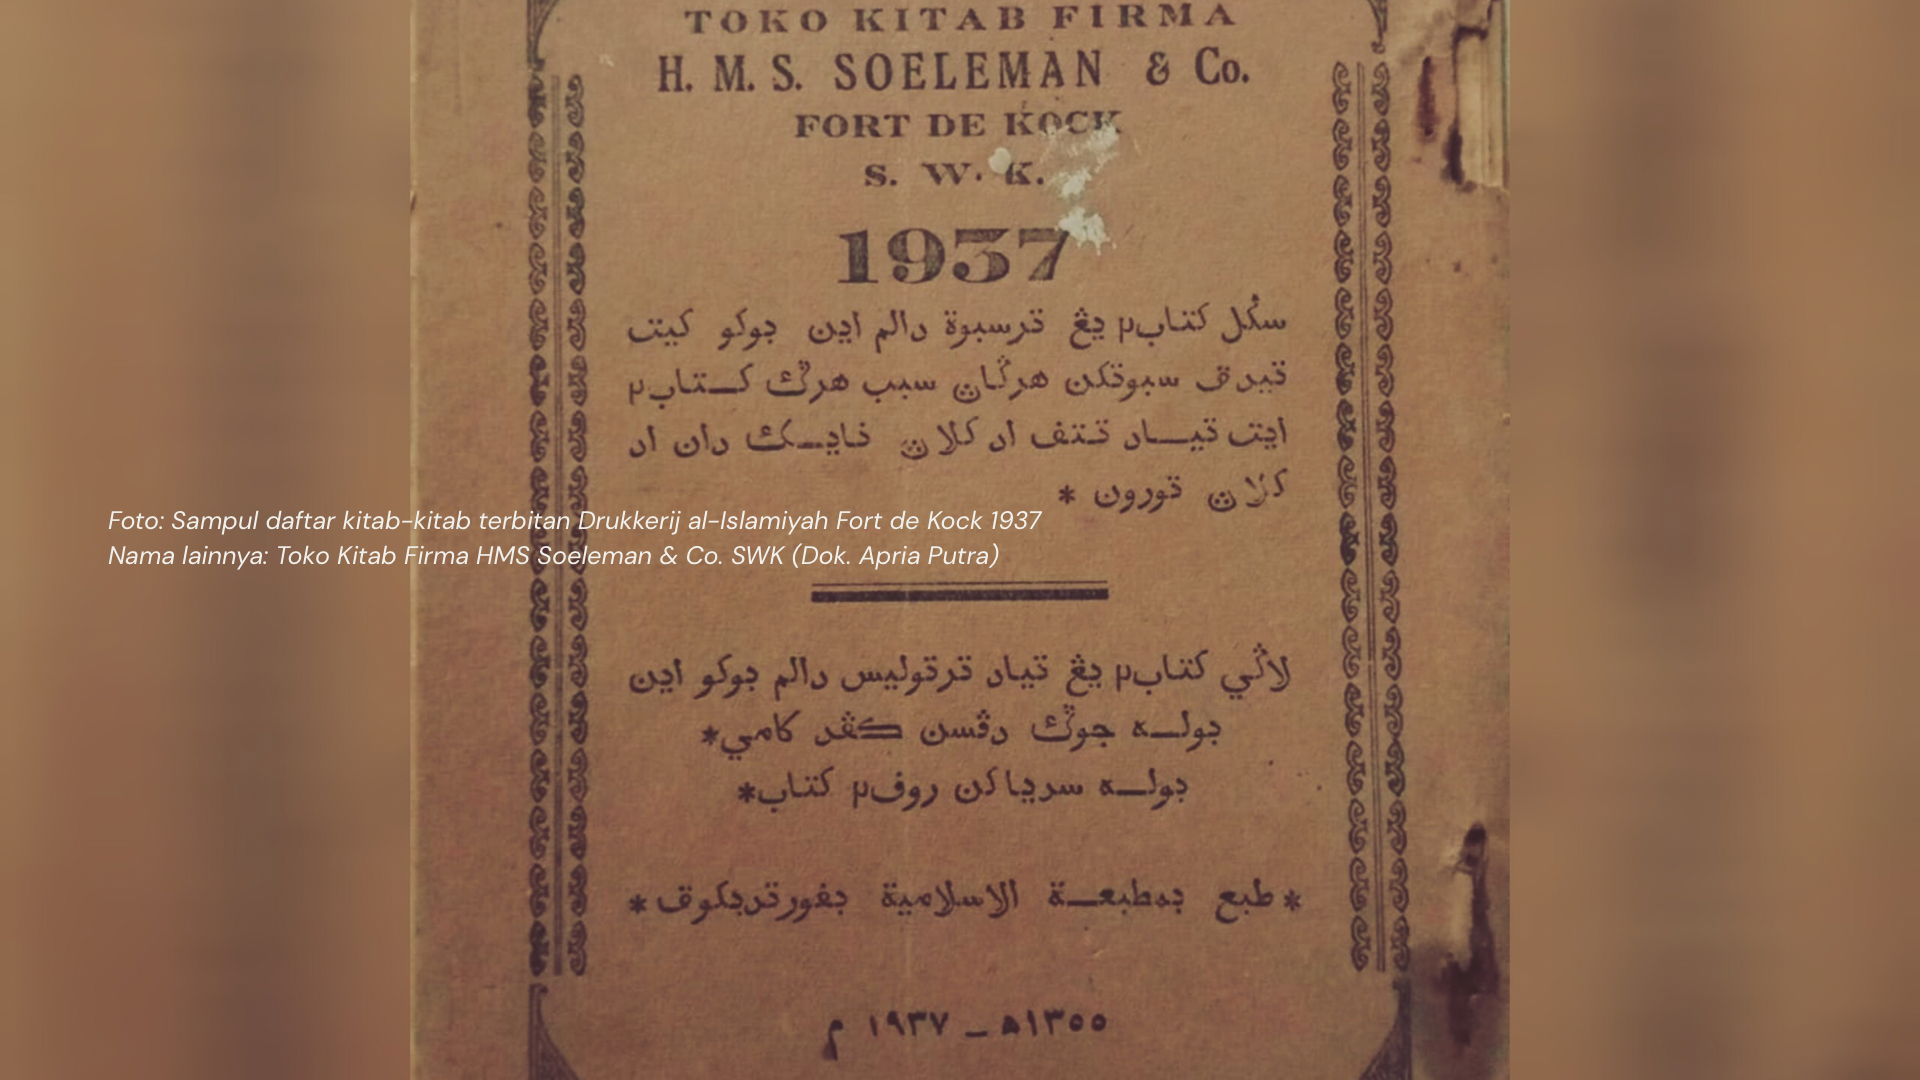 TOKO KITAB FIRMA
H. M. S. SOELEMAN & Co.
FORT DE KOCK
S. W. K.
1937
سݢل كتاب٢ يڠ ترسبوة دالم اين بوكو كيت
تيدق سبوتكن هرݢاڽ سبب هرݢ كتاب٢
ايت تياد تتف اد كلاڽ نايك دان اد
كلاڽ تورون *
Foto: Sampul daftar kitab-kitab terbitan Drukkerij al-Islamiyah Fort de Kock 1937
Nama lainnya: Toko Kitab Firma HMS Soeleman & Co. SWK (Dok. Apria Putra)
لاݢي كتاب٢ يڠ تياد ترتوليس دالم بوكو اين
بوله جوݢ دڤسن كڤد كامي*
بوله سدياكن روف٢ كتاب*
* طبع بمطبعة الاسلامية بفورتردبكوق *
١٣٥٥ه‍ ـ ١٩٣٧ م